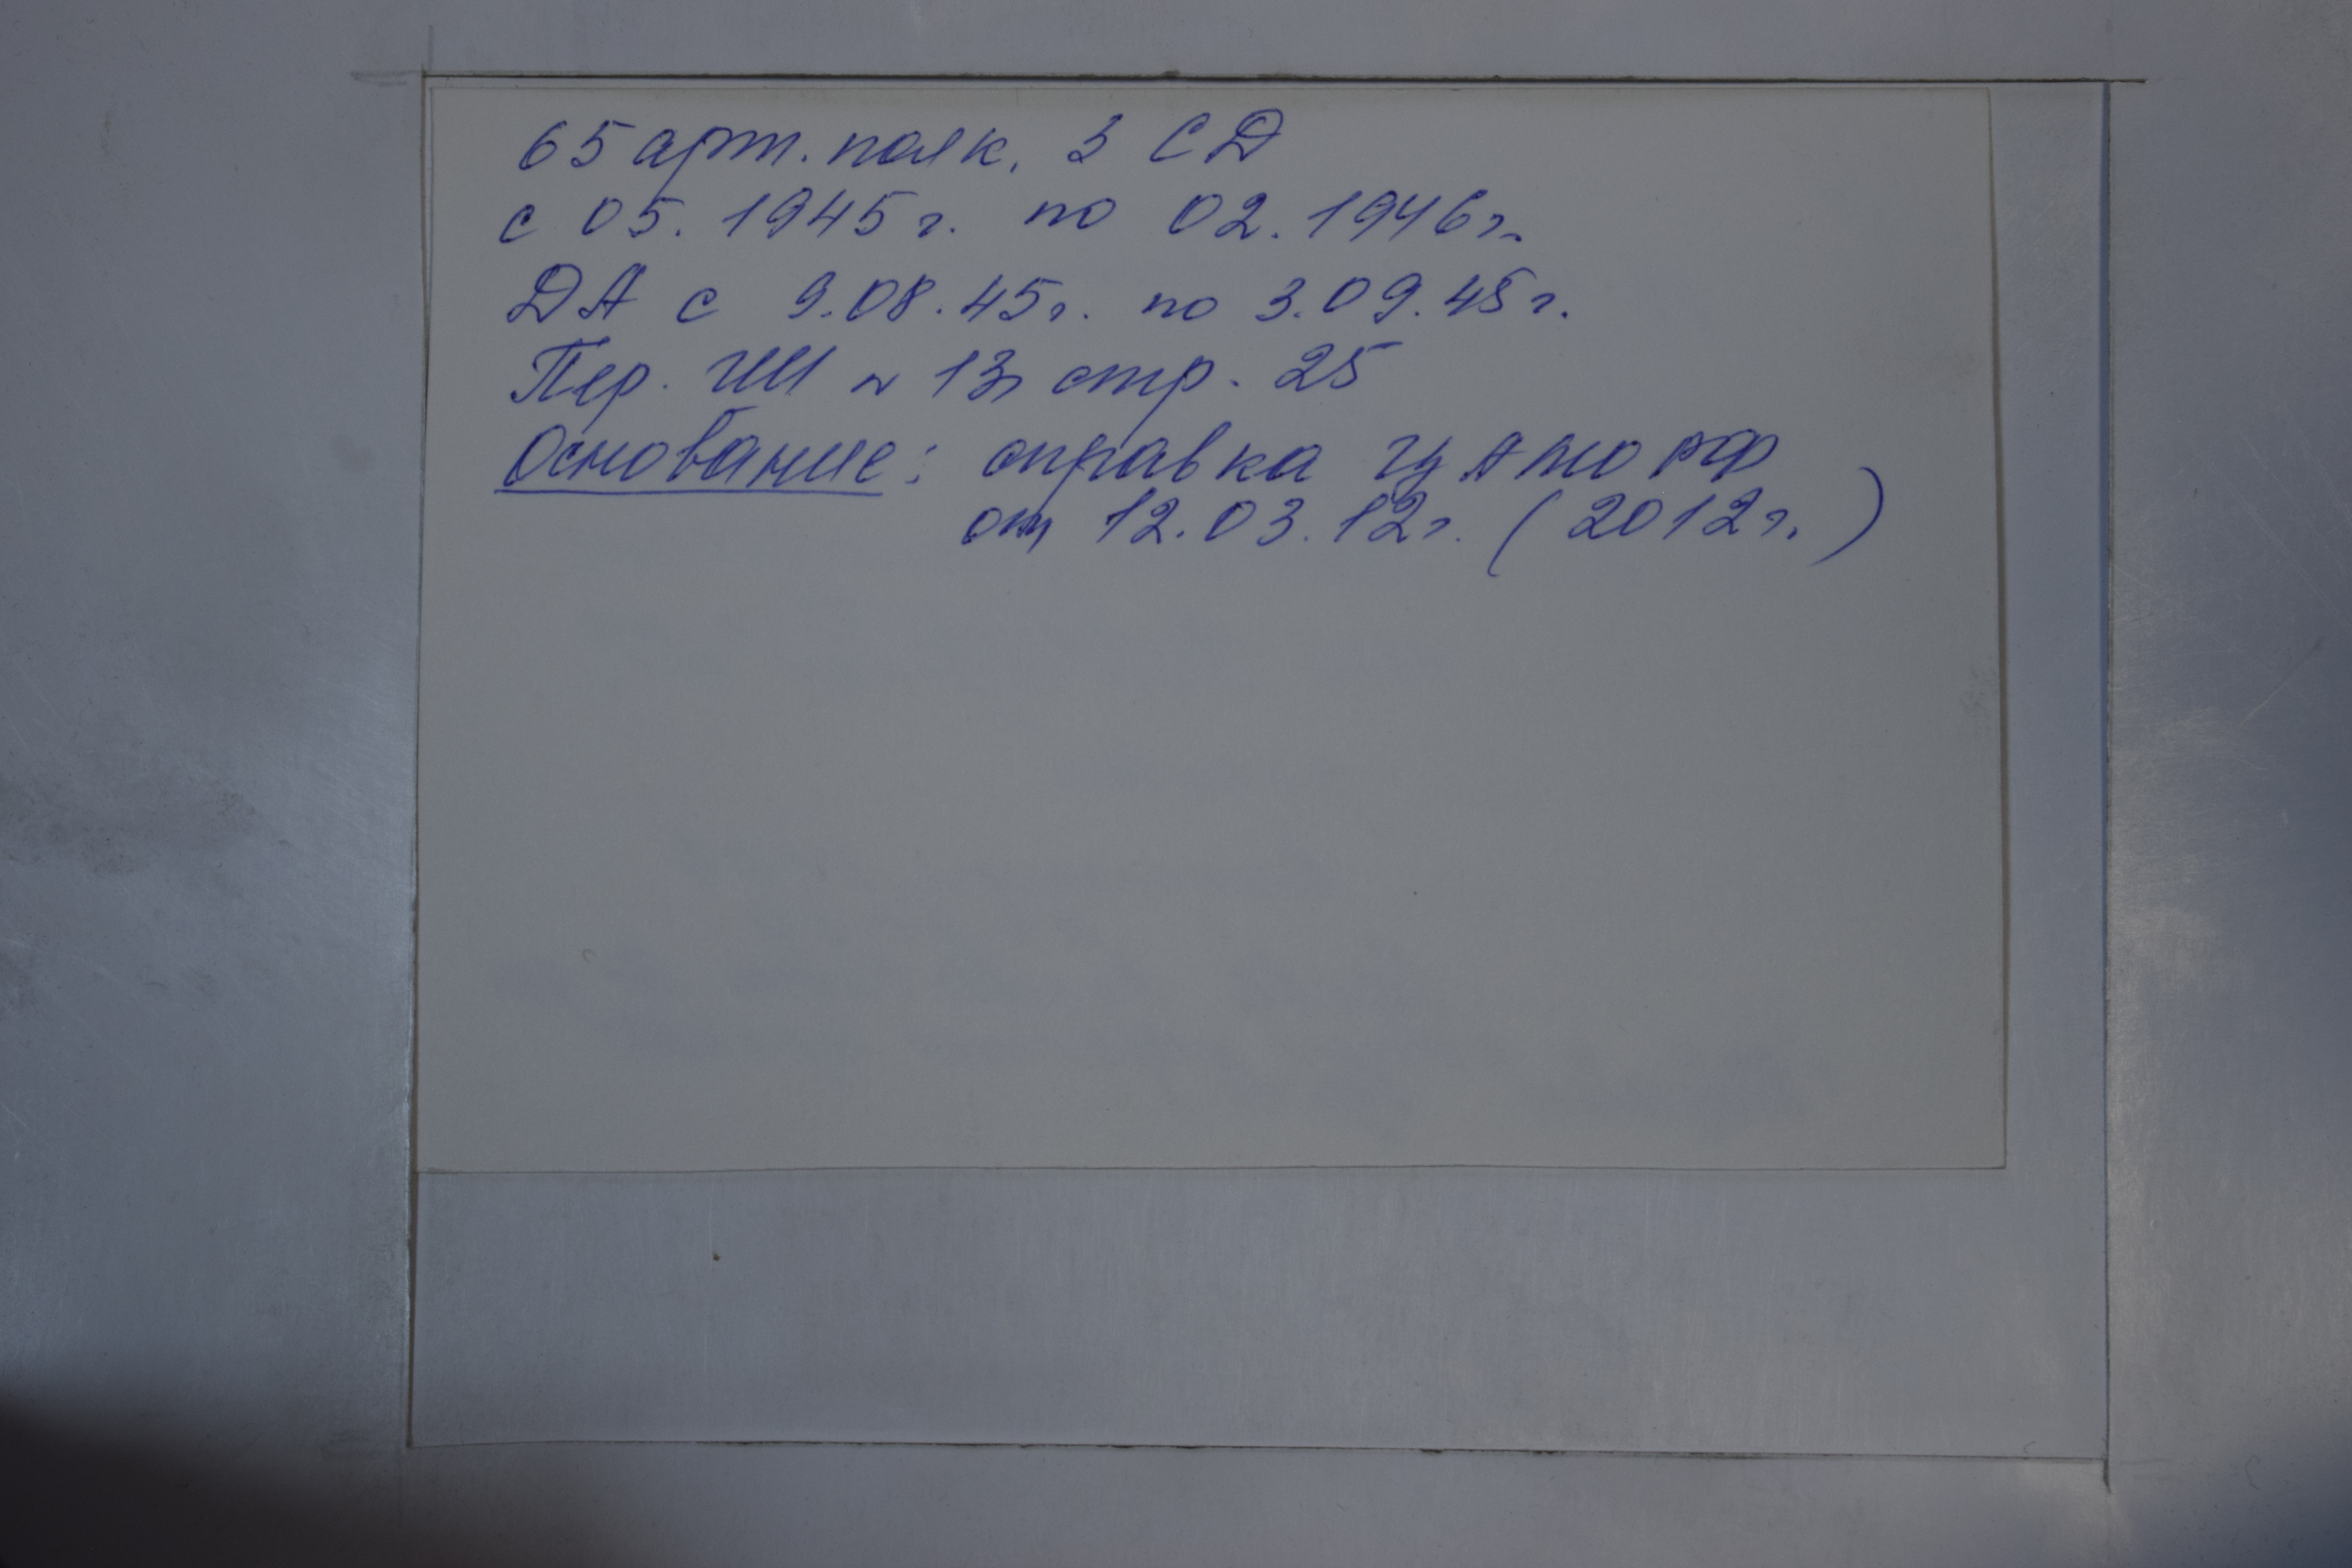 65 арт. полк. 3 СД
с 05. 1945 г. по 02. 1946 г.
ДА с 9.08.45 г. по 3.09.45 г.
Пер. № 13, стр. 25
Основание: справка ЦАМО РФ
от 12.03.12 г. (2012 г.)